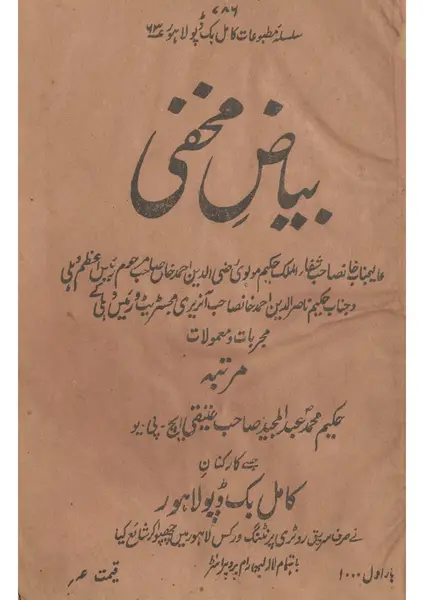 ۷۸۶
سلسلہ مطبوعات کامل بک ڈپو لاہور ۶۳
بیاضِ مخفی
عالیجناب خانصاحب شفاء الملک حکیم مولوی رضی الدین احمد خاں صاحب مرحوم رئیس اعظم دہلی
و جناب حکیم ناصر الدین احمد خانصاحب آنریری مجسٹریٹ و رئیس دہلی کے
مجربات و معمولات
مرتبہ
حکیم محمد عبد المجید صاحب عتیقی ایچ - پی - یو
جسے کارکنانِ
کامل بک ڈپو لاہور
نے روٹری پرنٹنگ ورکس لاہور میں چھپوا کر شائع کیا
باہتمام لالہ رام پروپرائٹر
بار اول ۱۰۰۰
قیمت عہ